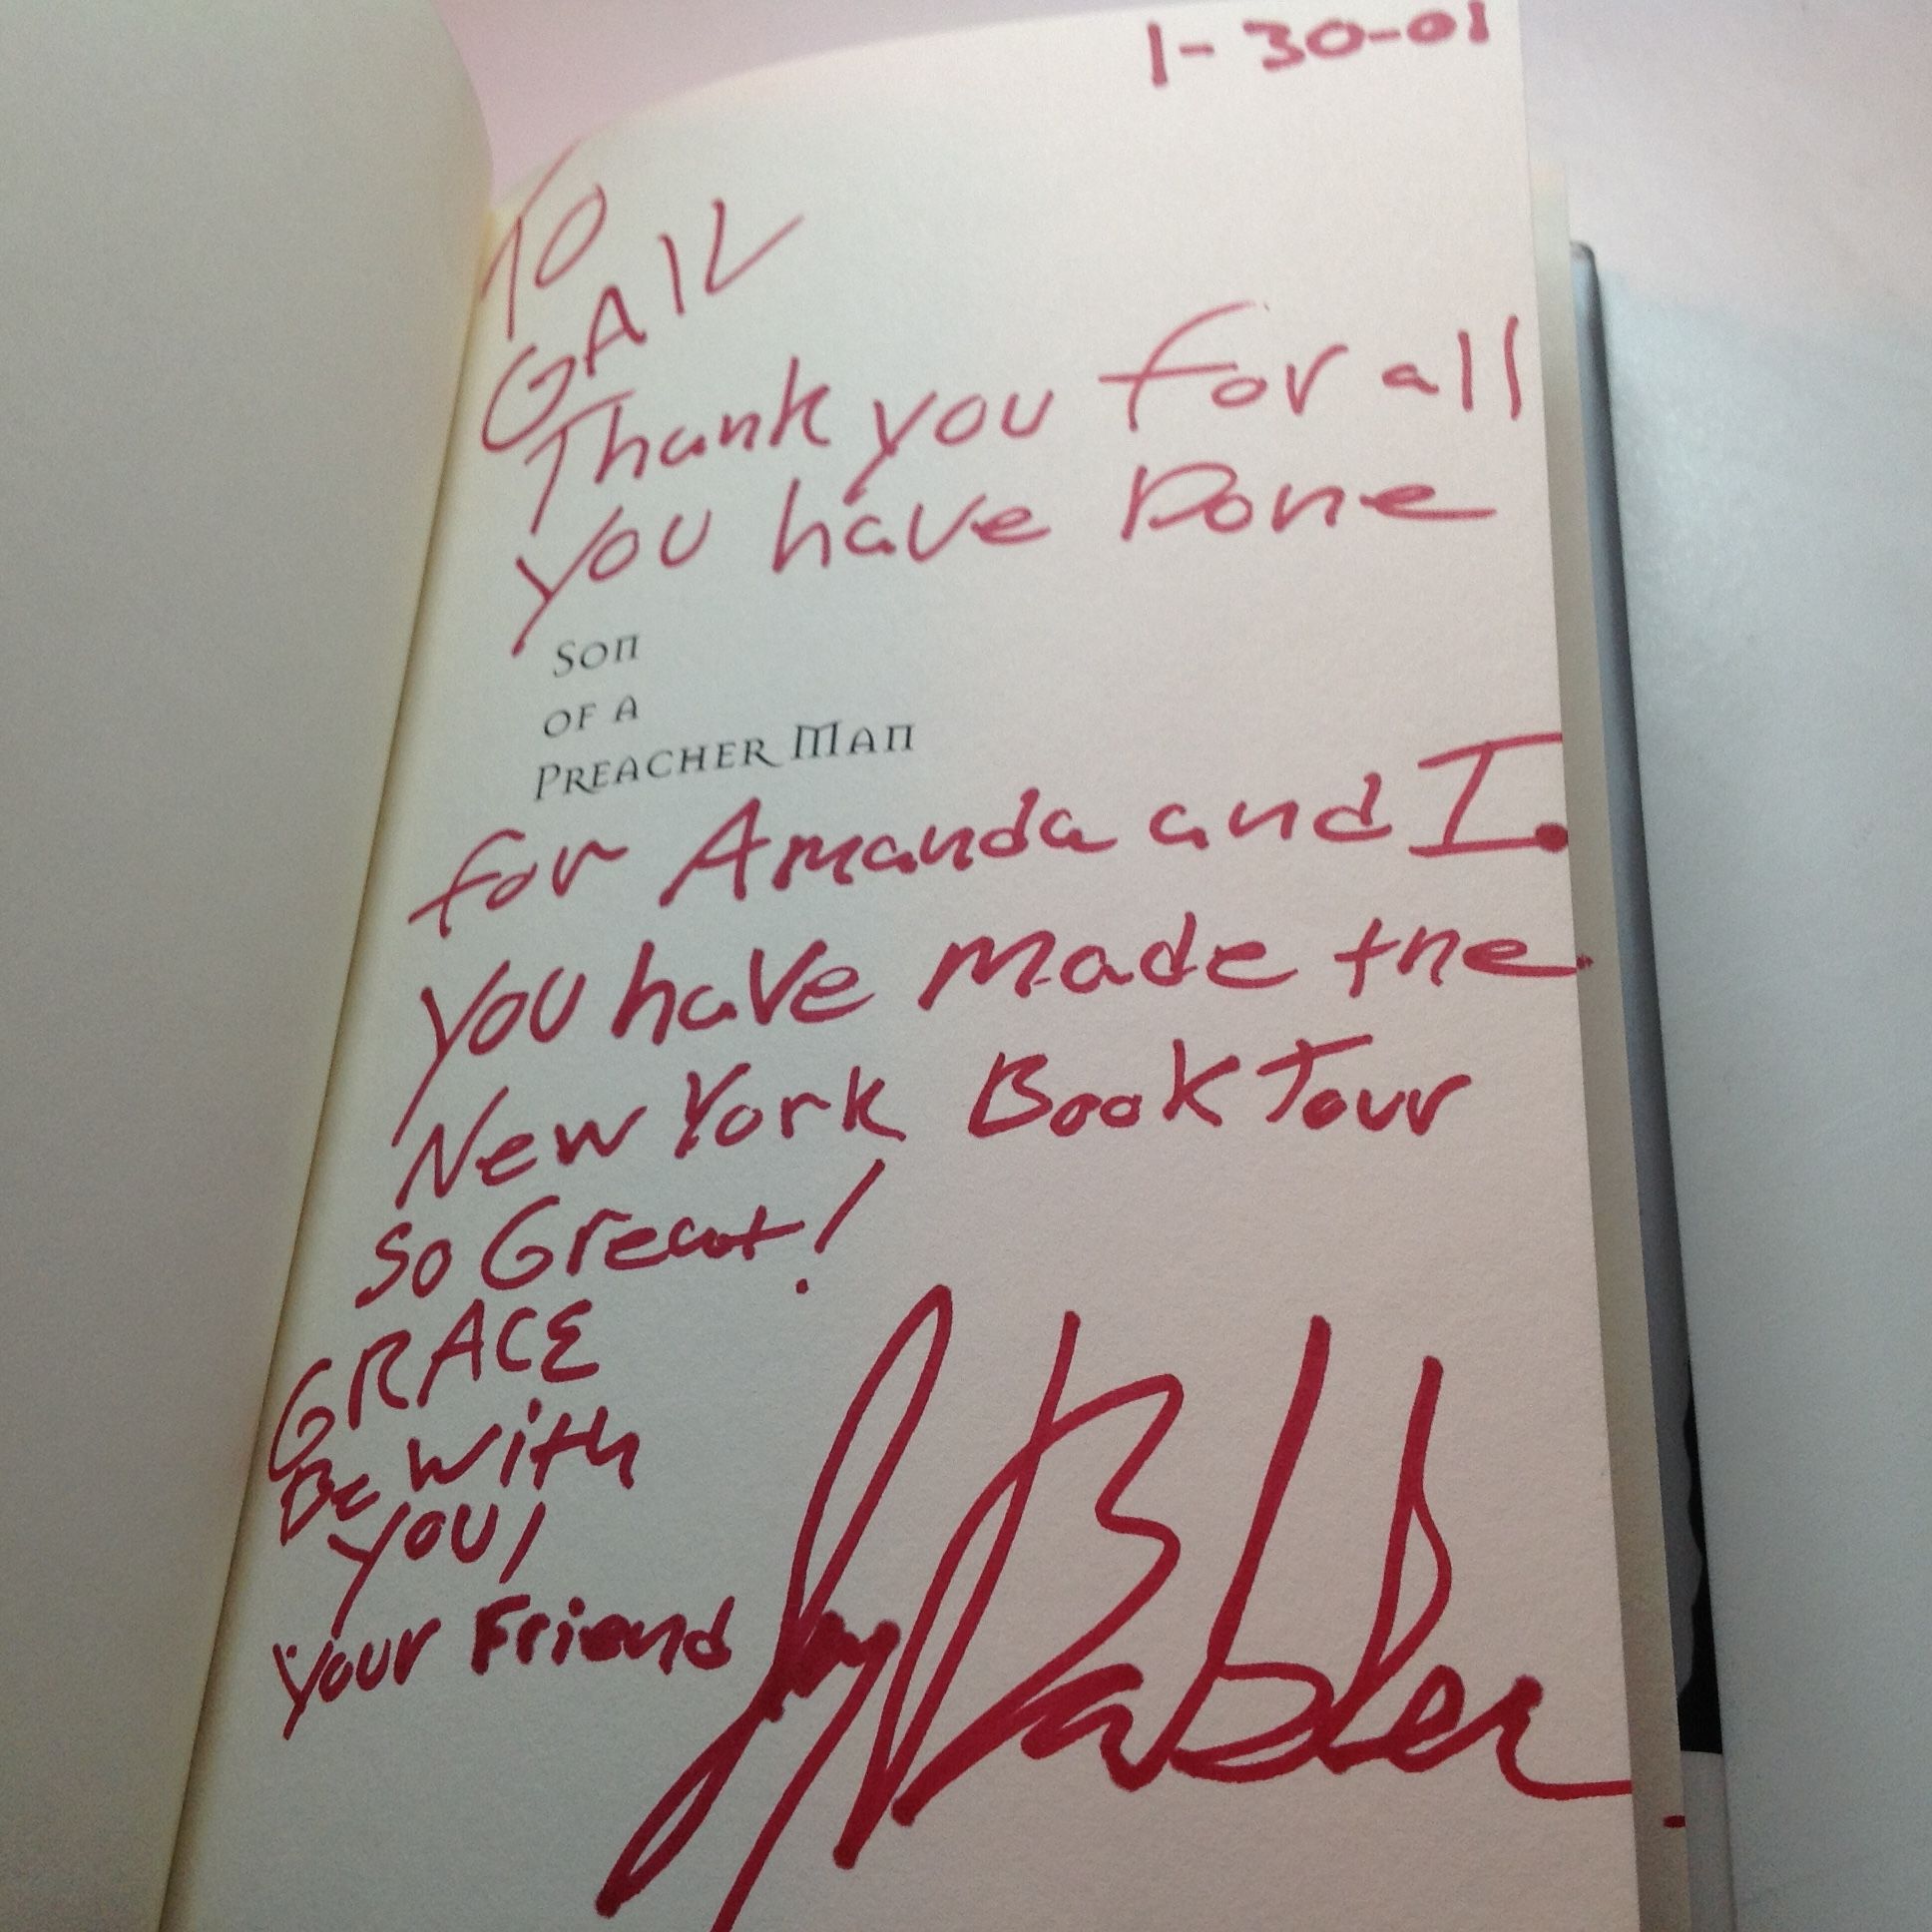 1-30-01
To
GAIL
Thank you for all
you have Done
Son
of a
Preacher Man
for Amanda and I.
You have made the
New York Book Tour
So Great!
GRACE
Be with
you!
Your Friend
Jay Bakker